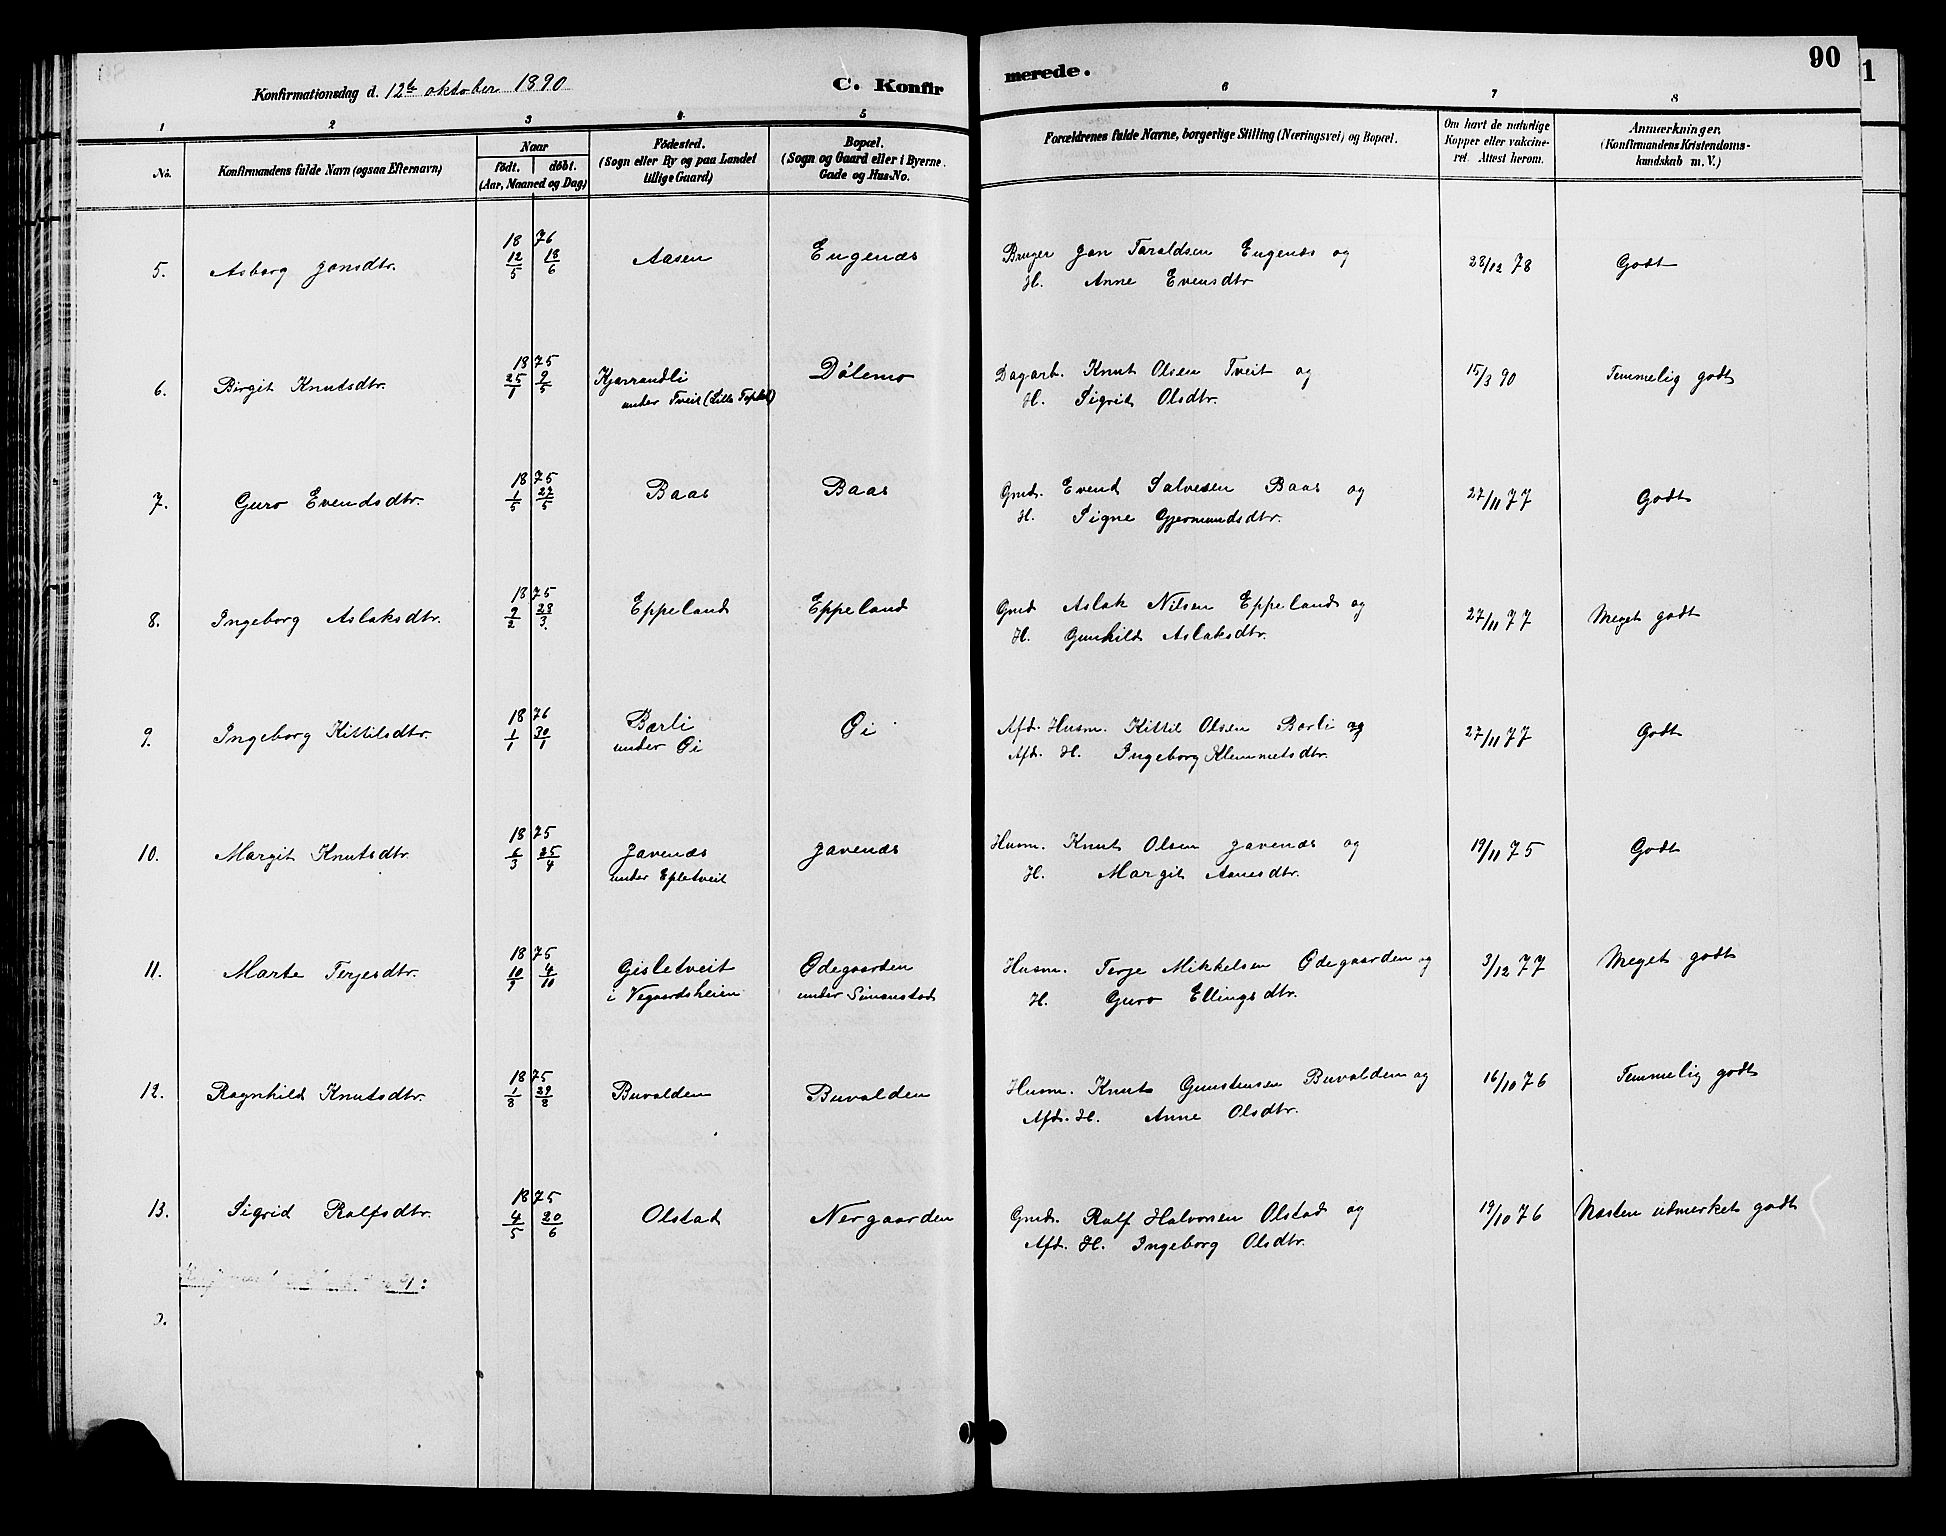 90
1
Konfirmationsdag d. 12te oktober 1890
C. Konfir
merede.
1 2 3 4. 5 6 7 8
No.
Konfirmandens fulde Navn (ogsaa Efternavn)
Naar
födt. döbt.
(Aar, Maaned og Dag)
Födested.
(Sogn eller By og paa Landet
tillige Gaard)
Bopæl.
(Sogn og Gaard eller i Byerne.
Gade og Hus-No.
Forældrenes fulde Navne, borgerlige Stilling (Næringsvei) og Bopæl.
Om havt de naturlige
Kopper eller vakcine-
ret. Attest herom.
Anmærkninger.
(Konfirmandens Kristendoms-
kundskab m. V.)
5. Asborg Jonsdtr. 1876 12/5 18/6 Aasen Eugenæs Bruger Jon Taraldsen Eugenæs og 28/12 78 Godt
H. Anne Evensdtr
6. Birgit Knutsdtr. 1875 25/1 9/5 Kjørrandli Dölemo Dagarb. Knut Olsen Tveit og 15/3 90 Temmelig godt
under Tveit H. Sigrid Olsdtr.
7. Guro Evendsdtr. 1875 1/5 27/5 Baas Baas Gmd. Evend Salvesen Baas og 27/11 77 Godt
H. Signe Gjermundsdtr.
8. Ingeborg Aslaksdtr. 1875 9/2 28/3. Eppeland Eppeland Gmd Aslak Nilsen Eppeland og 27/11 77 Meget godt
H. Gunhild Aslaksdtr.
9. Ingeborg Kittilsdtr. 1876 1/1 30/1 Bærli Øi Afd. Husm. Kittil Olsen Bærli og 27/11 77 Godt
under Øi Afd. H. Ingeborg Klemmetsdtr.
10. Margit Knutsdtr. 1875 6/3 25/4 Javenæs Javenæs Husm. Knut Olsen Javenæs og 19/11 75 Godt
under Epletveit H. Margit Aanesdtr.
11. Marte Terjesdtr. 1875 10/9 4/10 Gisletveit Ødegaarden Husm. Terje Mikkelsen Ødegaarden og 3/12 77 Meget godt
i Vegaardsheien under Simonstad H. Guro Ellingsdtr.
12. Ragnhild Knutsdtr. 1875 1/8 29/8 Buvolden Buvolden Husm. Knut Gunstensen Buvolden og 16/10 76 Temmelig godt
Afd. H. Anne Olsdtr.
13. Sigrid Rolfsdtr. 1875 4/5 20/6 Olstad Nergaarden Gmd. Rolf Halvorsen Olstad og 19/10 76 Næsten udmerket godt
Afd. H. Ingeborg Olsdtr.